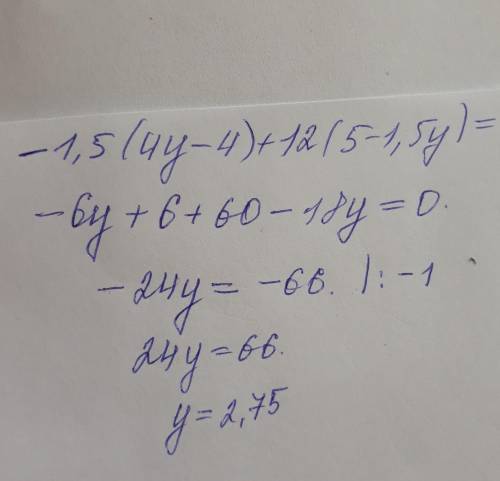 -1,5(4y-4)+12(5-1,5y)=
-6y+6+60-18y=0.
-24y=-66. |:-1
24y=66.
y=2,75